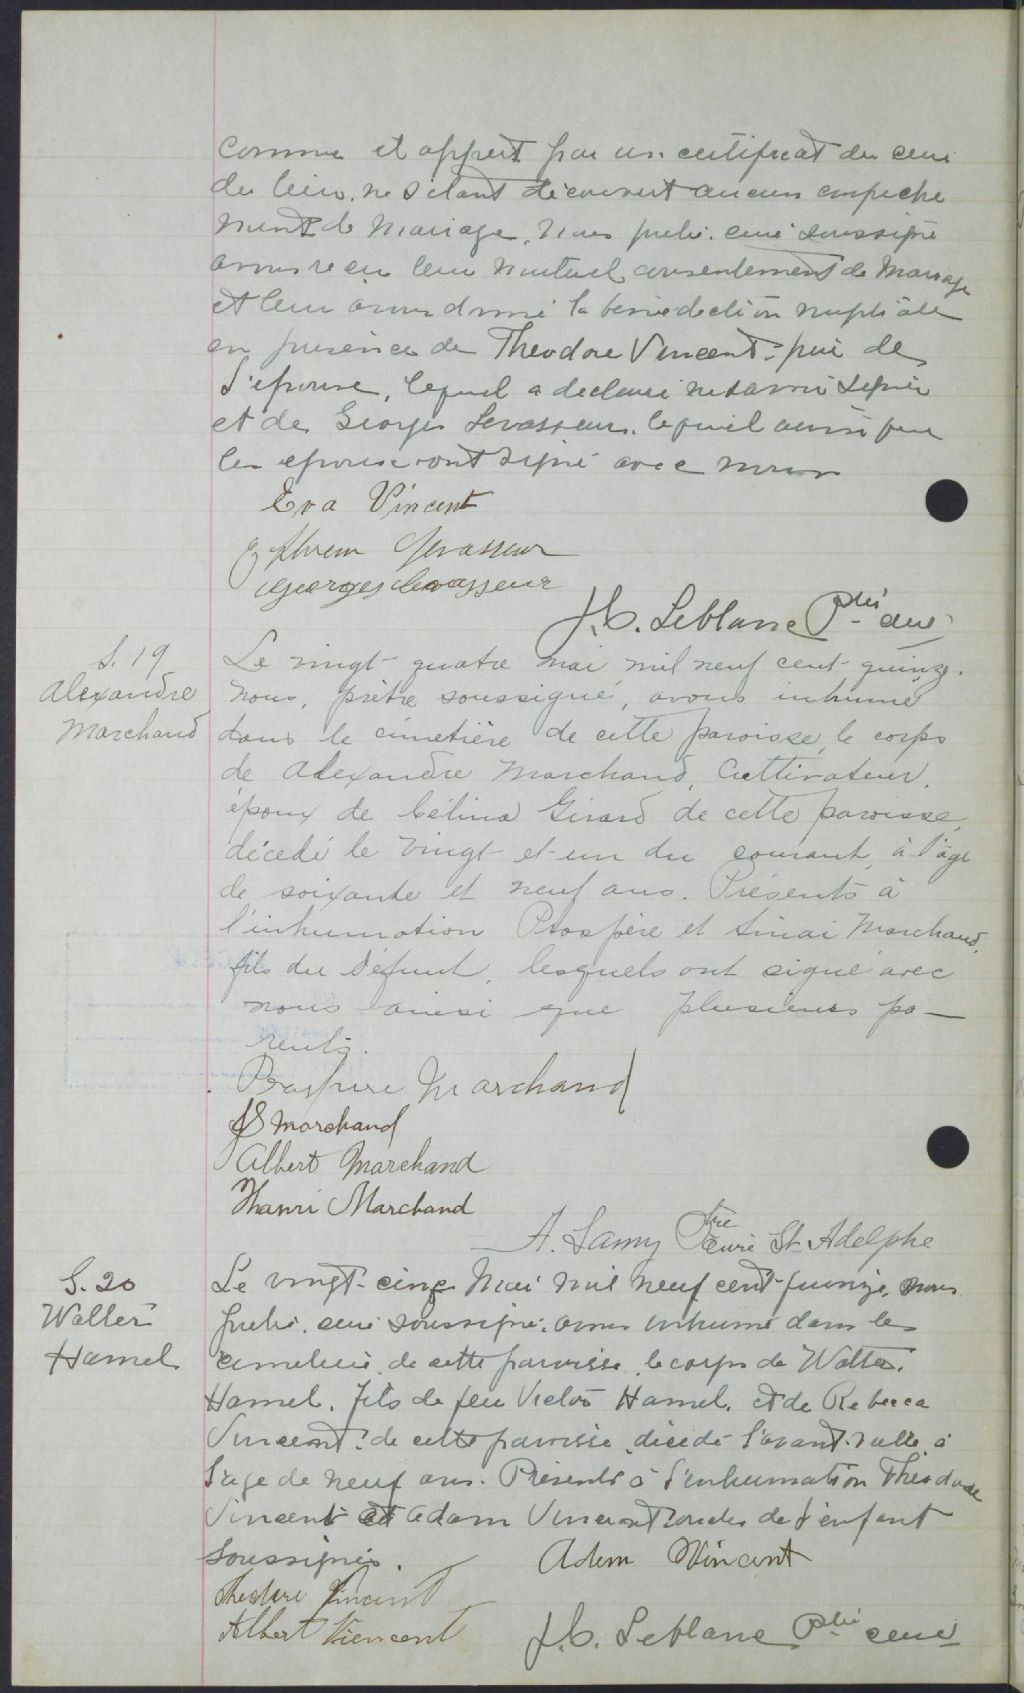 comme il appert par un certificat du curé
du lieu, ne s'étant découvert aucun empêche
ment de mariage, Nous prêtre curé soussigné
avons reçu leur mutuel consentement de Mariage
et leur avons donné la bénédiction nuptiale
en présence de Theodore Vincent père de
l'épouse, lequel a déclaré ne savoir signer
et de Georges Levasseur lequel ainsi que
les époux ont signé avec nous
Eva Vincent
Ephrem Levasseur
Georges Levasseur
J. C. Leblanc Ptre curé
S. 19
Alexandre
Marchand
Le vingt-quatre mai mil neuf cent quinze,
nous, prêtre soussigné, avons inhumé
dans le cimetière de cette paroisse, le corps
de Alexandre Marchand, Cultivateur,
époux de Célina Girard de cette paroisse,
décédé le vingt-et-un du courant, à l'âge
de soixante et neuf ans. Présents à
l'inhumation Prospère et Sinai Marchand,
fils du défunt, lesquels ont signé avec
nous ainsi que plusieurs pa-
rents.
Prospère Marchand
JS Marchand
Albert Marchand
Thanri Marchand
A. Lamy Ptre Curé St Adelphe
S. 20
Walter
Hamel
Le vingt-cinq Mai mil neuf cent-quinze, nous
prêtre, curé soussigné, avons inhumé dans le
cimetière de cette paroisse, le corps de Walter
Hamel, fils de feu Victor Hamel, et de Rebecca
Vincent, de cette paroisse, décédé l'avant-veille à
l'age de neuf ans. Présents à l'inhumation Théodore
Vincent et Adam Vincent oncles de l'enfant
soussignés.
Adem Vincent
Theodore Vincent
Albert Viencent
J. C. Leblanc Ptre curé